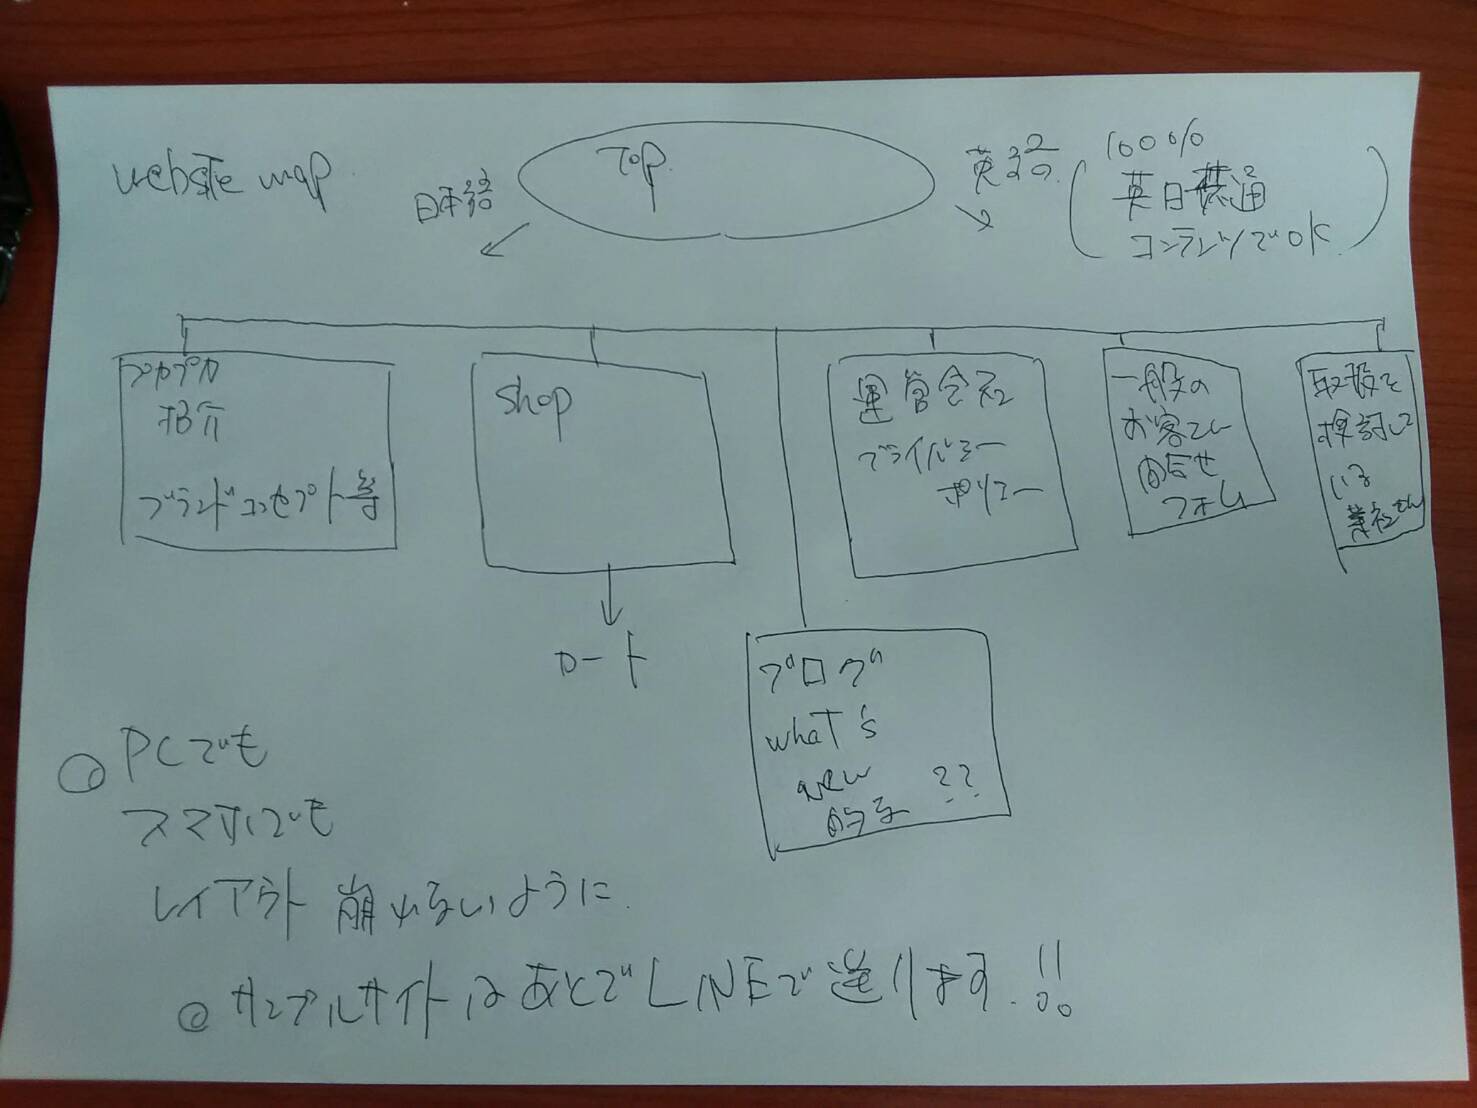 website map
Top
日本語
英語
100%
英日共通
コンテンツでOK
プカプカ
紹介
ブランドコンセプト等
shop
カート
運営会社
プライバシー
ポリシー
一般の
お客さん
問合せ
フォーム
取扱を
検討して
いる
業社さん
ブログ
what's
new
的な ??
PCでも
スマホでも
レイアウト崩れないように
サンプルサイトはあとでLINEで送ります.!!